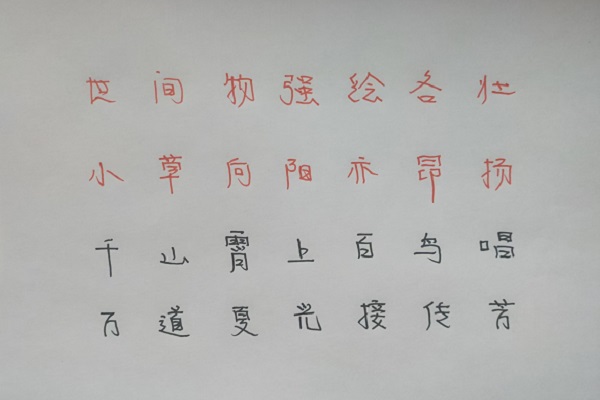 世间物强绘各壮
小草向阳亦昂扬
千山霄上百鸟唱
万道夏光接传芳